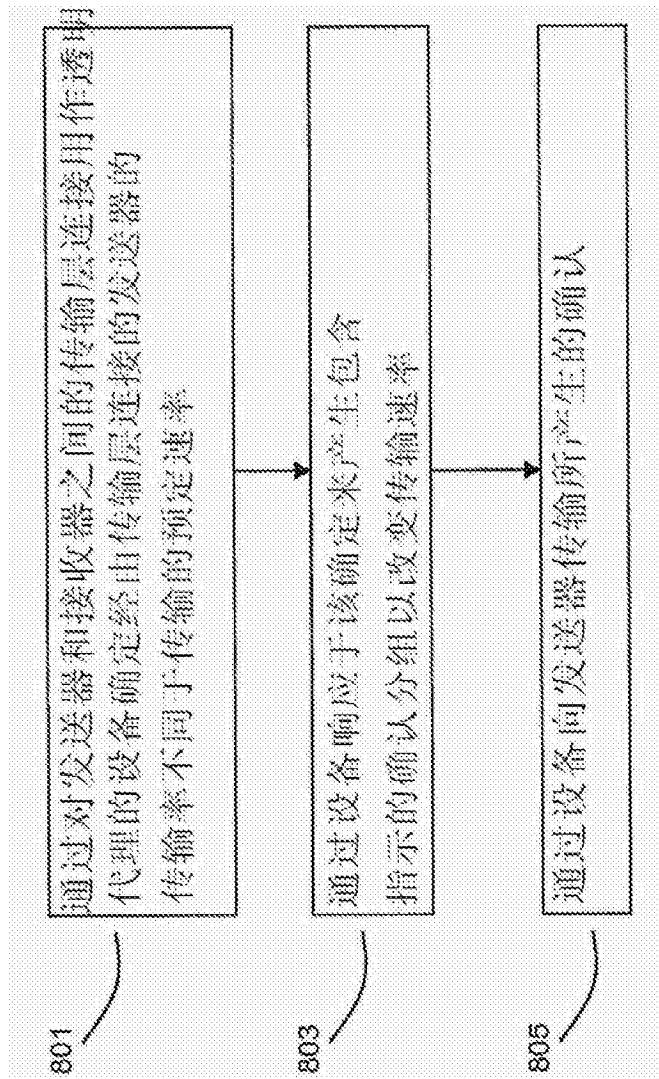 801
通过对发送器和接收器之间的传输层连接用作透明
代理的设备确定经由传输层连接的发送器的
传输率不同于传输的预定速率
803
通过设备响应于该确定来产生包含
指示的确认分组以改变传输速率
805
通过设备向发送器传输所产生的确认